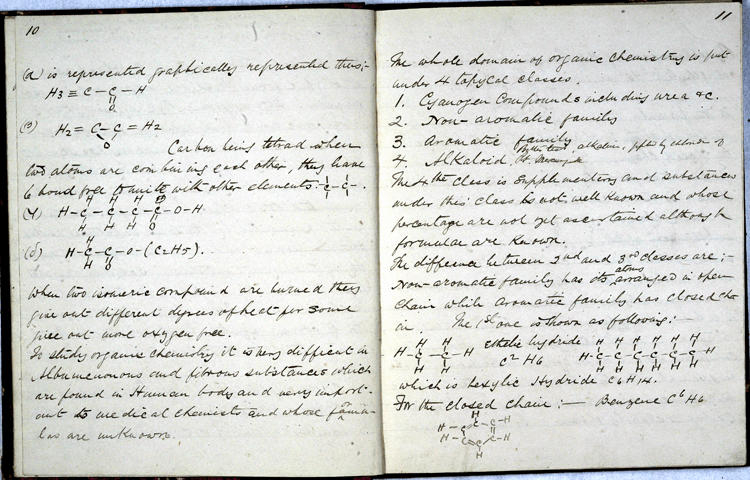 10
(α) is represented graphically represented thus:-
H3 ≡ C – C – H
O
(β) H2 = C – C = H2
O
Carbon being tetrad when
two atoms are combining each other, they leave
6 bond free to unite with other elements. – C – C – .
(γ) H – C – C – C – C – O – H
H H H
H H H O
(δ) H – C – C – O – (C2H5).
H
H O
When two isomeric compound are burned they
give out different degrees of heat for some
give out more oxygen free.
To study organic chemistry it is very difficult in
Albumenonous and fibrous substances which
are found in Human body and very import-
ant to medical chemists and whose formu-
las are unknown.
11
The whole domain of organic chemistry is put
under 4 topycal classes.
1. Cyanogen Compounds including urea &c.
2. Non-aromatic family
3. Aromatic family
4. Alkaloid alkalies, by chloride of
The 4th class is supplementary and substances
under this class is not well known and whose
percentage are not yet ascertained although
formulae are known.
The difference between 2nd and 3rd classes are:-
Non-aromatic family has its atoms arranged in open
chain while Aromatic family has closed cha-
in. The 1st one is shown as following:-
H H Ethele hydride H H H H H H
H – C – C – H C2 H6 H – C – C – C – C – C – C – H
H H H H H H H H
which is hexylic Hydride C6 H14.
For the closed chain:— Benzene C6 H6
H
H – C C – H
H – C C – H
C
H